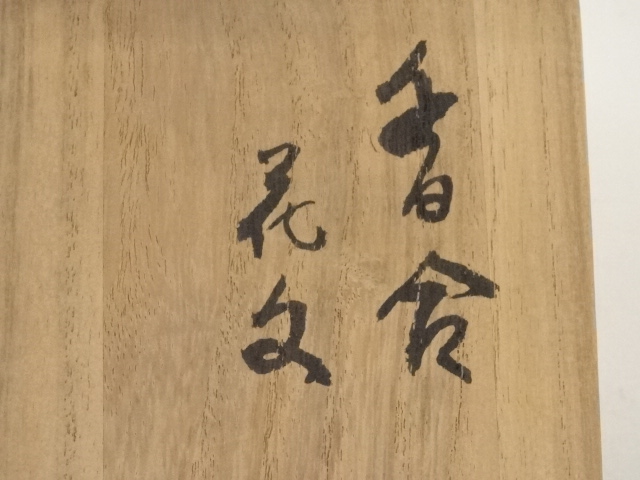 香合
花文